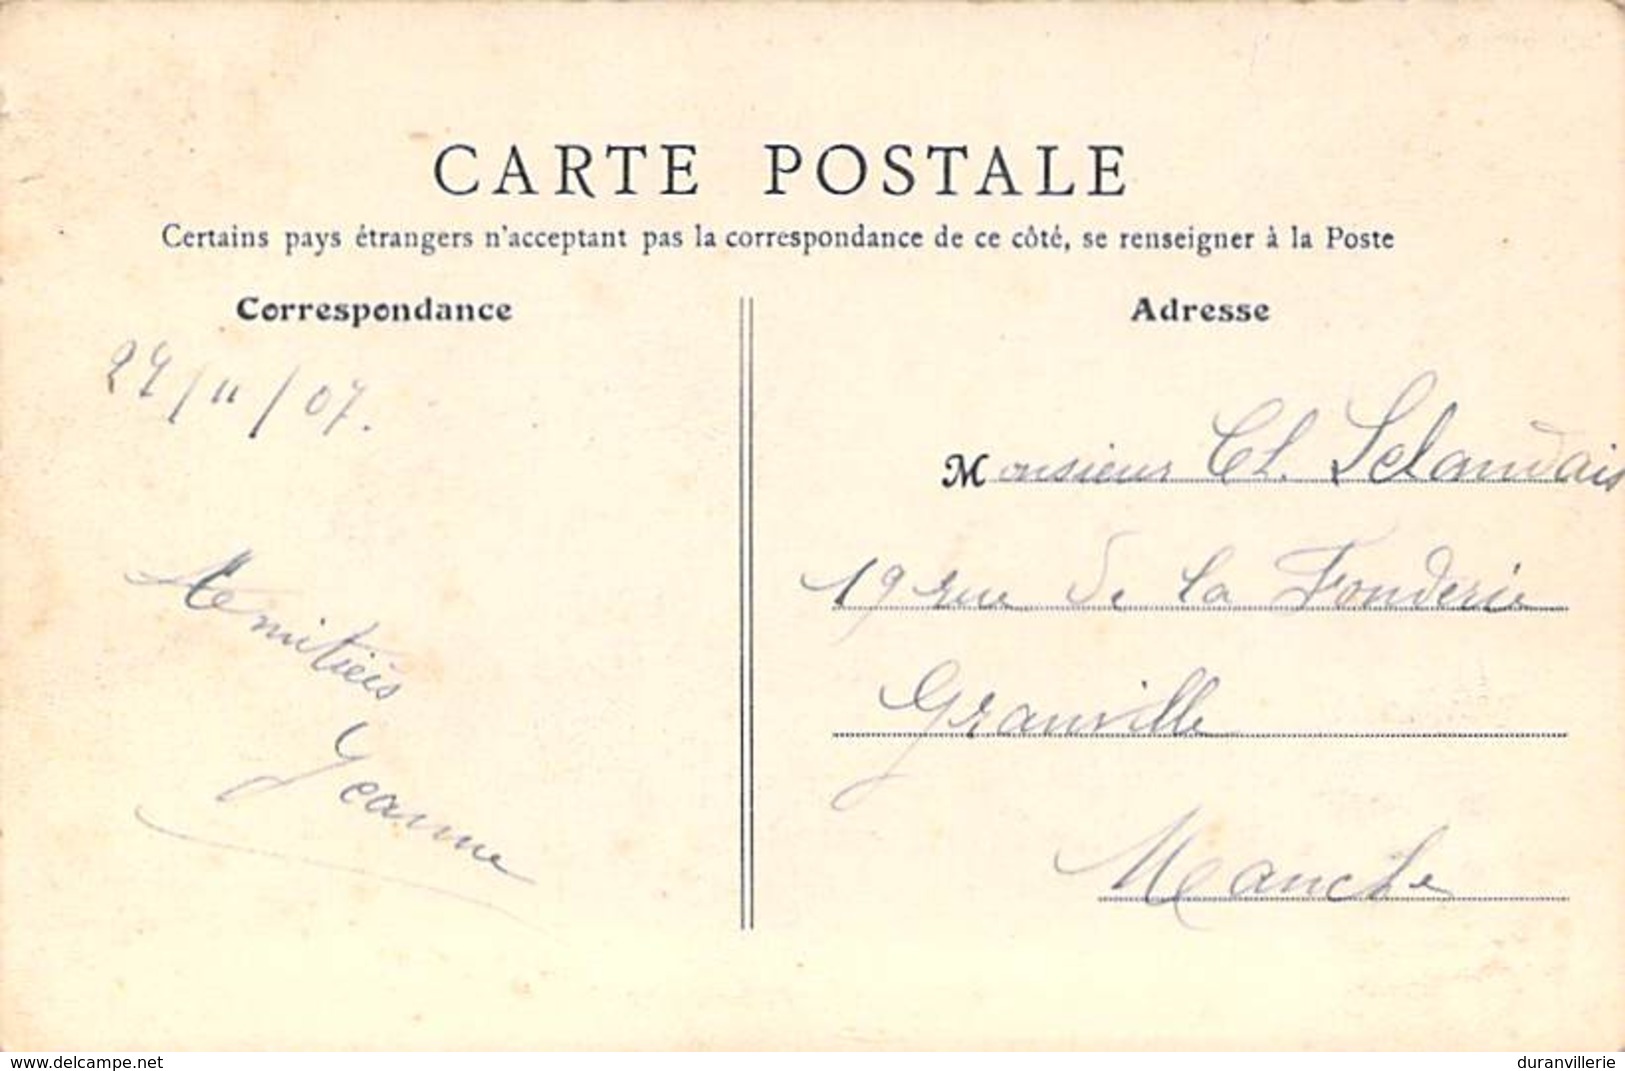 CARTE POSTALE
Certains pays étrangers n'acceptant pas la correspondance de ce côté, se renseigner à la Poste
Correspondance
/11/07.
Amitiés
Jeanne
Adresse
Monsieur Ch. Lelandais
19 rue de la Fonderie
Granville
Manche
www.delcampe.net
duranvillerie